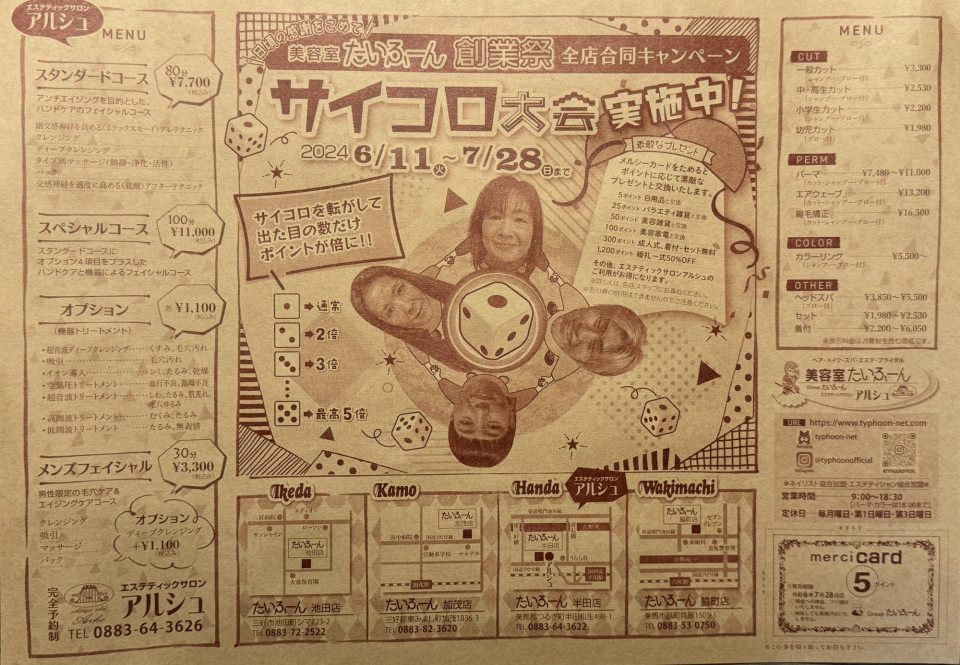 エステティックサロン
アルシュ
MENU
スタンダードコース
80分
¥7,700
(税込み)
アンチエイジングを目的とした、
ハンドケアのフェイシャルコース
副交感神経を高める(リラックスモード)プレテクニック
クレンジング
ディープクレンジング
タイプ別マッサージ(鎮静・浄化・活性)
パック
交感神経を適度に高める(覚醒)アフターテクニック
スペシャルコース
100分
¥11,000
(税込み)
スタンダードコースに
オプション4項目をプラスした
ハンドケアと機器によるフェイシャルコース
オプション
(機器トリートメント)
各¥1,100
(税込み)
・超音波ディープクレンジング……くすみ、毛穴汚れ
・吸引……毛穴汚れ
・イオン導入……しみ、たるみ、乾燥
・空気圧トリートメント……血行不良、循環不良
・超音波トリートメント……しわ、たるみ、肌荒れ、
毛穴ゆるみ
・高周波トリートメント……むくみ、たるみ
・低周波トリートメント……たるみ、無表情
メンズフェイシャル
30分
¥3,300
(税込み)
男性限定の毛穴ケア&
エイジングケアコース
クレンジング
吸引
マッサージ
パック
オプション
ディープクレンジング
+¥1,100
(税込み)
完全予約制
エステティックサロン
アルシュ
TEL 0883-64-3626
日頃の感謝をこめて!
美容室 たいふーん 創業祭 全店合同キャンペーン
サイコロ大会実施中!
2024 6/11火〜7/28日まで
サイコロを転がして
出た目の数だけ
ポイントが倍に!!
➡通常
➡2倍
➡3倍
➡最高5倍
素敵なプレゼント
メルシーカードをためると
ポイントに応じて素敵な
プレゼントと交換いたします。
5ポイント 日用品と交換
25ポイント バラエティ雑貨と交換
50ポイント 美容雑貨と交換
100ポイント 美容家電と交換
300ポイント 成人式、着付・セット無料
1,200ポイント 婚礼一式50%OFF
その後、エステティックサロンアルシュの
ご利用がお得になります。
※詳しくは、各店スタッフにお尋ねください。
Ikeda
三好病院
エディオン
サンシャイン
ローソン
たいふーん
池田店
大象保育園
たいふーん 池田店
三好市池田町シマ723-2
TEL 0883-72-2522
Kamo
たいふーん
加茂店
田中病院
国道192号線
自動車学校
マルナカ
たいふーん 加茂店
三好郡東みよし町加茂1836-3
TEL 0883-82-3620
Handa
エステティックサロン
アルシュ
たいふーん
半田店
アルシュ
国道192号線
たいふーん 半田店
美馬郡つるぎ町半田松生498-1
TEL 0883-64-3162
Wakimachi
たいふーん
脇町店
セブン
イレブン
国道193号線
たいふーん 脇町店
TEL 0883-53-0750
MENU
CUT
一般カット
(シャンプー・ブロー付)
¥3,300
中・高生カット
(シャンプー・ブロー付)
¥2,530
小学生カット
(シャンプー・ブロー付)
¥2,200
幼児カット
(シャンプー・ブロー付)
¥1,980
PERM
パーマ
(カット・シャンプー・ブロー付)
¥7,480〜¥11,000
エアウェーブ
(カット・シャンプー・ブロー付)
¥13,200
縮毛矯正
(カット・シャンプー・ブロー付)
¥16,500
COLOR
カラーリング
(シャンプー・ブロー付)
¥5,500〜
OTHER
ヘッドスパ
(ブロー付)
¥3,850〜¥5,500
セット
¥1,980〜¥2,530
着付
¥2,200〜¥6,050
※表示料金は消費税を含む価格です。
ヘア・メイク・スパ・エステ・ブライダル
美容室 たいふーん
Group たいふーん
エステティックサロン アルシュ
URL https://www.typhoon-net.com
typhoon-net
@typhoonofficial
※ネイリスト協会加盟・エステティシャン協会加盟※
営業時間 9:00〜18:30
(パーマ・カラーは18:00まで)
定休日 毎月曜日・第1日曜日・第3日曜日
merci card
5ポイント
有効期間
令和6年7月28日迄
Group たいふーん
※この券を切り取ってお持ち下さい。